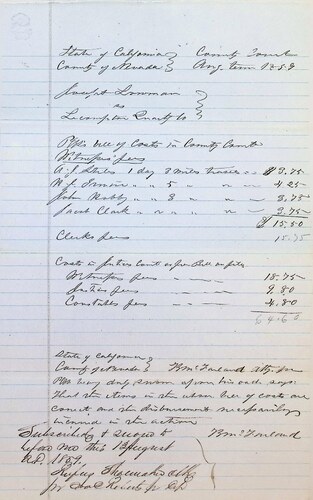 State of California } County Court
County of Nevada } Aug. term 1859
Joseph Lowman
vs
Lecompton Quartz Co
Plffs bill of Costs in County Court
Witnesses fees
1 day 3 miles travel $3.75
N. J. " " 5 " " 4.25
John " " 3 " " 3.75
Jacob Clark " " " " 3.75
$15.50
Clerks fees 15.75
Costs in Justices Court as per Bill
Witnesses fees 18.75
Justices fees 9.80
Constables fees 4.80
64.60
State of California }
County of Nevada } R McFarland Atty for
Plff being duly sworn upon his oath says:
that the items in the above bill of costs are
correct and the disbursements necessarily
incurred in the action
Subscribed & sworn to R McFarland
before me this August
A.D. 1859.
Rufus Shoemaker Clk